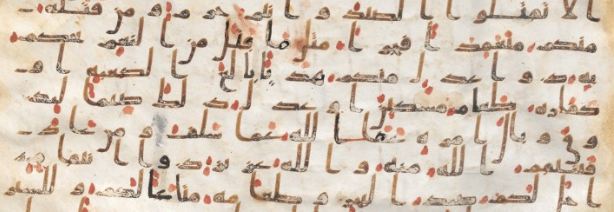 ا لا تقتلوا الصيد وانتم حرم ومن قتله
منكم متعمدا فجزا مثل ما قتل من النعم يحكم
به ذوا عدل منكم هديا بلغ الكعبه او
كفره طعام مسكين او عدل ذلك صياما ليذ
وق وبال امره عفا الله عما سلف ومن عاد
فينتقم الله منه والله عزيز ذو انتقام
احل لكم صيد البحر وطعامه متاعا لكم وللسير